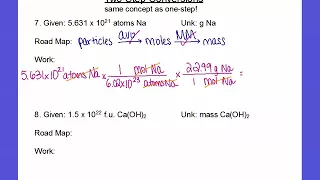 Two-Step Conversions
same concept as one-step!
7. Given: 5.631 x 10²¹ atoms Na Unk: g Na
Road Map: particles avo→ moles MM→ mass
Work:
5.631×10²¹ atoms Na × 1 mol Na / 6.02×10²³ atoms Na × 22.99 g Na / 1 mol Na =
8. Given: 1.5 x 10²² f.u. Ca(OH)₂ Unk: mass Ca(OH)₂
Road Map:
Work: